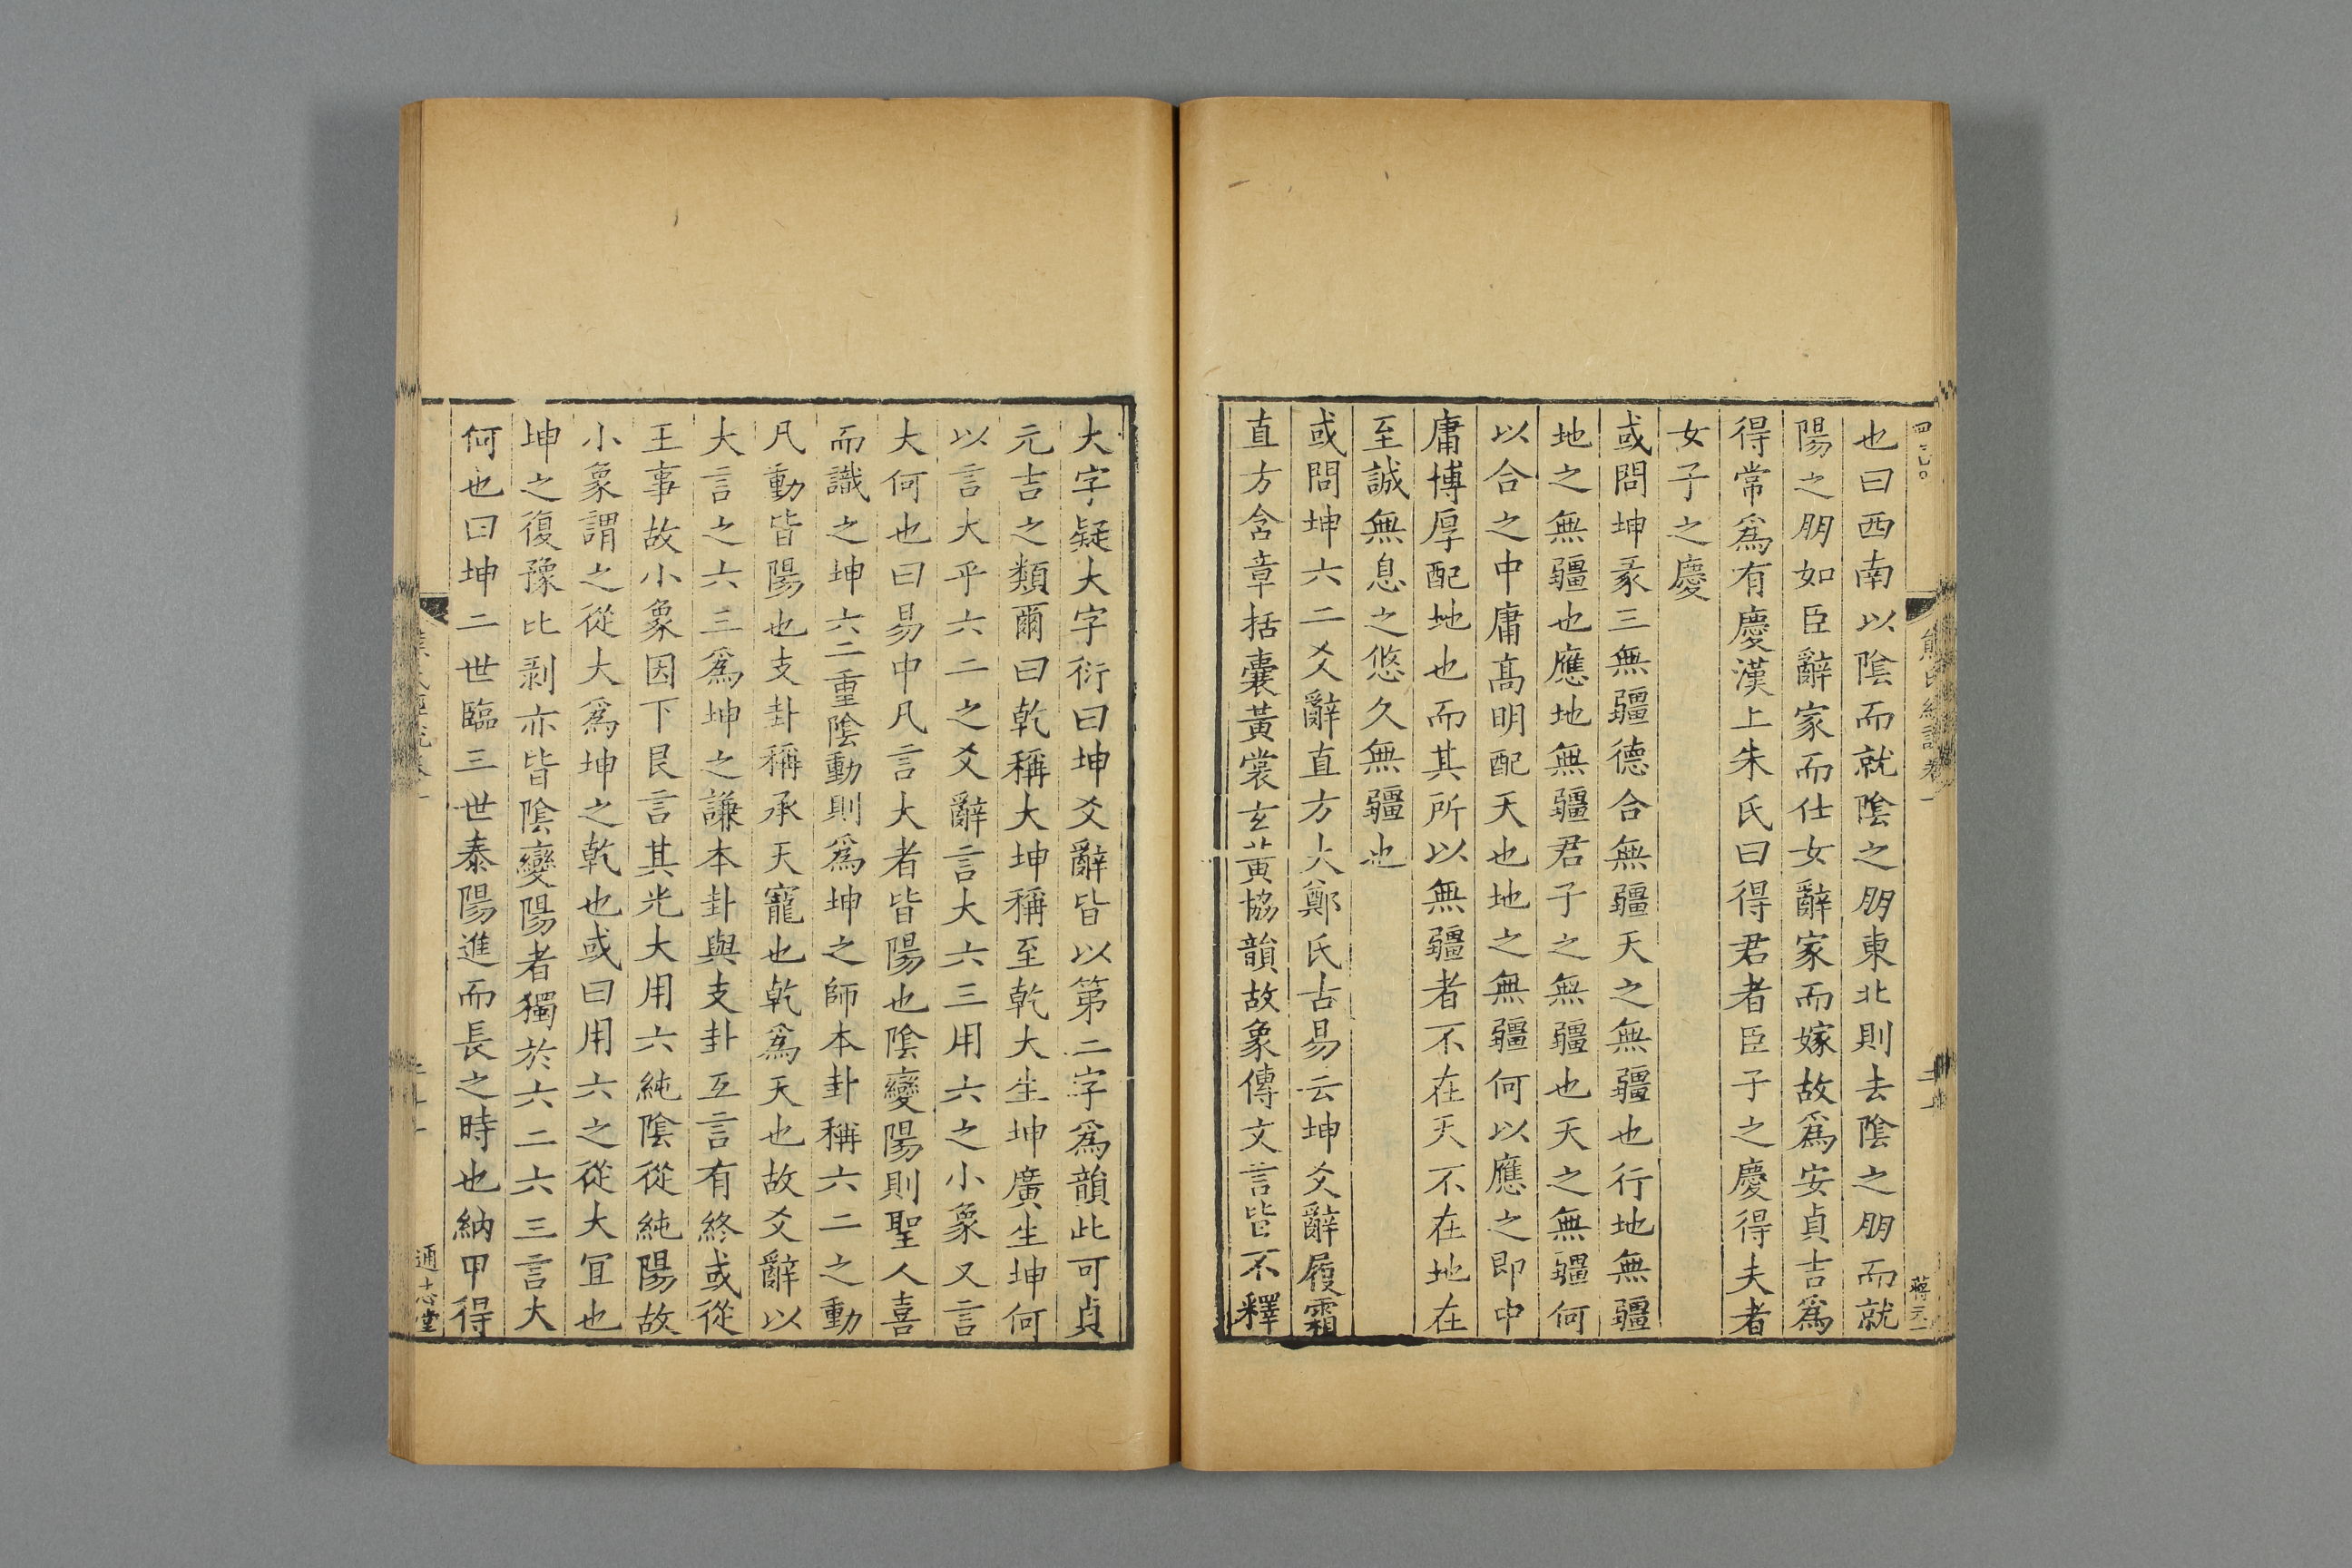 也曰西南以陰而就陰之朋東北則去陰之朋而就
陽之朋如臣辭家而仕女辭家而嫁故爲安貞吉爲
得常爲有慶漢上朱氏曰得君者臣子之慶得夫者
女子之慶
或問坤彖三無疆德合無疆天之無疆也行地無疆
地之無疆也應地無疆君子之無疆也天之無疆何
以合之中庸高明配天也地之無疆何以應之即中
庸博厚配地也而其所以無疆者不在天不在地在
至誠無息之悠久無疆也
或問坤六二爻辭直方大鄭氏古易云坤爻辭履霜
直方含章括囊黃裳玄黃協韻故象傳文言皆不釋
大字疑大字衍曰坤爻辭皆以第二字爲韻此可貞
元吉之類爾曰乾稱大坤稱至乾大生坤廣生坤何
以言大乎六二之爻辭言大六三用六之小象又言
大何也曰易中凡言大者皆陽也陰變陽則聖人喜
而識之坤六二重陰動則爲坤之師本卦稱六二之動
凡動皆陽也支卦稱承天寵也乾爲天也故爻辭以
大言之六三爲坤之謙本卦與支卦互言有終或從
王事故小象因下艮言其光大用六純陰從純陽故
小象謂之從大爲坤之乾也或曰用六之從大冝也
坤之復豫比剥亦皆陰變陽者獨於六二六三言大
何也曰坤二世臨三世泰陽進而長之時也納甲得
通志堂